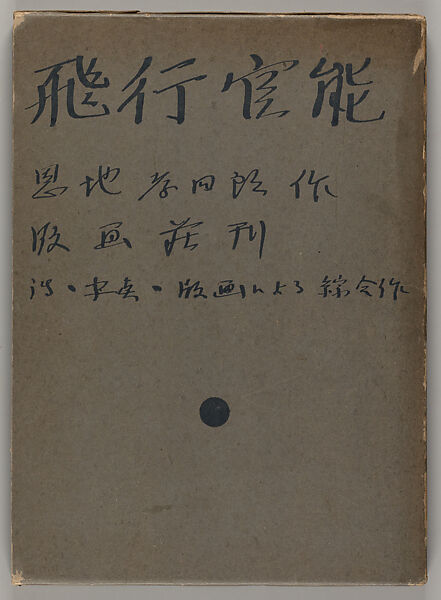 飛行官能
恩地孝四郎作
版画荘刊
詩・写真・版画による綜合作